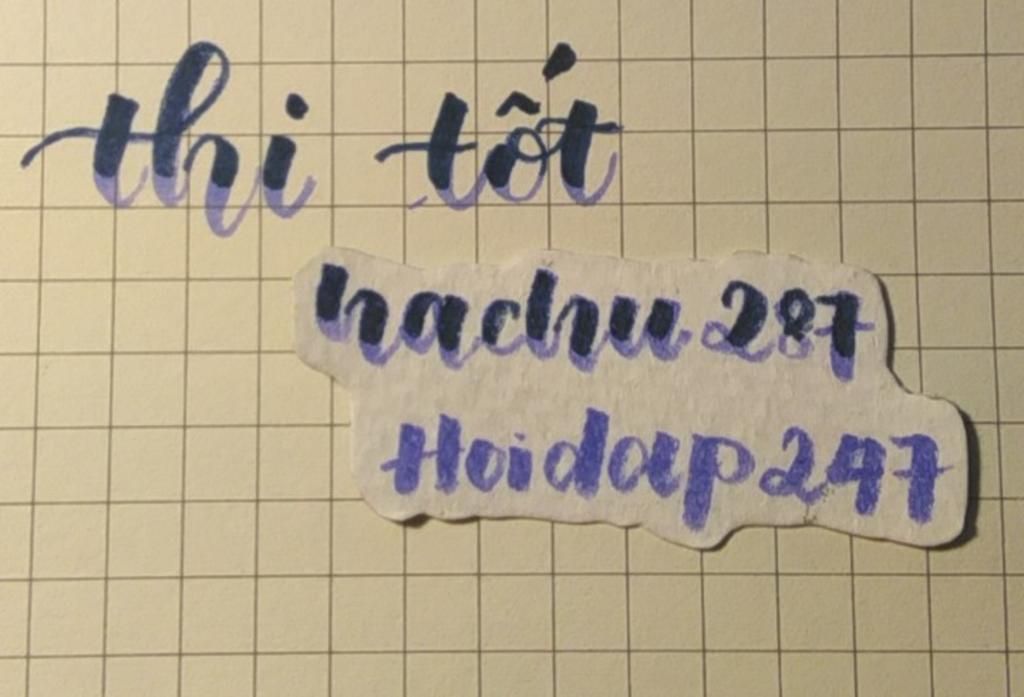 thi tốt
hachu287
Hoidap247